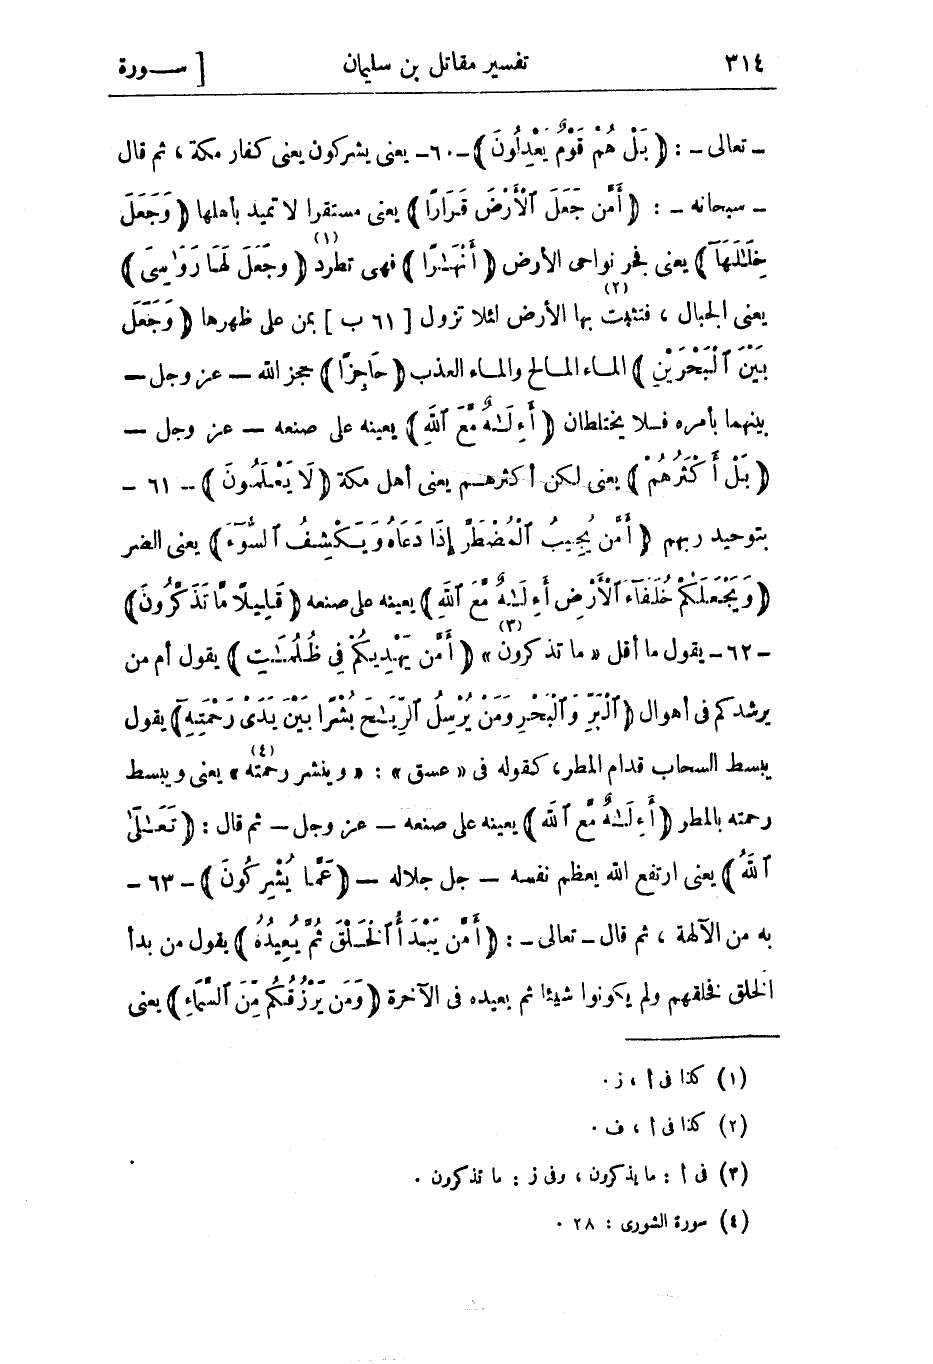 ٣١٤ تفسير مقاتل بن سليمان [ ســـورة
ـ تعالى ـ : ﴿ بَلْ هُمْ قَوْمٌ يَعْدِلُونَ ﴾ ـ ٦٠ ـ يعنى يشركون يعنى كفار مكة ، ثم قال
ـ سبحانه ـ : ﴿ أَمَّن جَعَلَ ٱلْأَرْضَ قَرَارًا ﴾ يعنى مستقرا لا تميد بأهلها ﴿ وَجَعَلَ
خِلَـٰلَهَآ ﴾ يعنى فجر نواحى الأرض ﴿ أَنْهَـٰرًا ﴾ فهى تطرد (١) ﴿ وجَعَلَ لَهَا رَوَٰسِىَ ﴾
يعنى الجبال ، فتثبت (٢) بها الأرض لئلا تزول [ ٦١ ب ] بمن على ظهرها ﴿ وَجَعَلَ
بَيْنَ ٱلْبَحْرَيْنِ ﴾ المـاء المـالح والمـاء العذب ﴿ حَاجِزًا ﴾ حجز الله ـ عز وجل ـ
بينهما بأمره فـلا يختلطان ﴿ أَءِلَـٰهٌ مَّعَ ٱللَّهِ ﴾ يعينه على صنعه ـ عـز وجل ـ
﴿ بَلْ أَكْثَرُهُمْ ﴾ يعنى لكن أكثرهـم يعنى أهل مكة ﴿ لَا يَعْلَمُونَ ﴾ ـ ٦١ ـ
بتوحيد ربهم ﴿ أَمَّن يُجِيبُ ٱلْمُضْطَرَّ إِذَا دَعَاهُ وَيَكْشِفُ ٱلسُّوٓءَ ﴾ يعنى الضر
﴿ وَيَجْعَلُكُمْ خُلَفَآءَ ٱلْأَرْضِ أَءِلَـٰهٌ مَّعَ ٱللَّهِ ﴾ يعينه على صنعه ﴿ قَلِيلًا مَّا تَذَكَّرُونَ ﴾
ـ ٦٢ ـ يقول ما أقل « ما تذكرون » (٣) ﴿ أَمَّن يَهْدِيكُمْ فِى ظُلُمَـٰتِ ﴾ يقول أم من
يرشدكم فى أهوال ﴿ ٱلْبَرِّ وَٱلْبَحْرِ وَمَن يُرْسِلُ ٱلرِّيَـٰحَ بُشْرًا بَيْنَ يَدَىْ رَحْمَتِهِۦٓ ﴾ يقول
يبسط السحاب قدام المطر، كقوله فى « عسق » : « وينشر رحمته » (٤) يعنى ويبسط
رحمته بالمطر ﴿ أَءِلَـٰهٌ مَّعَ ٱللَّهِ ﴾ يعينه على صنعه ـ عـز وجل ـ ثم قال : ﴿ تَعَـٰلَى
ٱللَّهُ ﴾ يعنى ارتفع الله يعظم نفسه ـ جل جلاله ـ ﴿ عَمَّا يُشْرِكُونَ ﴾ ـ ٦٣ ـ
به من الآلهة ، ثم قال ـ تعالى ـ : ﴿ أَمَّن يَبْدَأُ ٱلْخَلْقَ ثُمَّ يُعِيدُهُ ﴾ يقول من بدأ
الخلق فخلقهم ولم يكونوا شيئا ثم يعيده فى الآخرة ﴿ وَمَن يَرْزُقُكُم مِّنَ ٱلسَّمَآءِ ﴾ يعنى
(١) كذا فى أ ، ز .
(٢) كذا فى أ ، ف .
(٣) فى أ : ما يذكرون ، وفى ز : ما تذكرون .
(٤) سورة الشورى : ٢٨ .